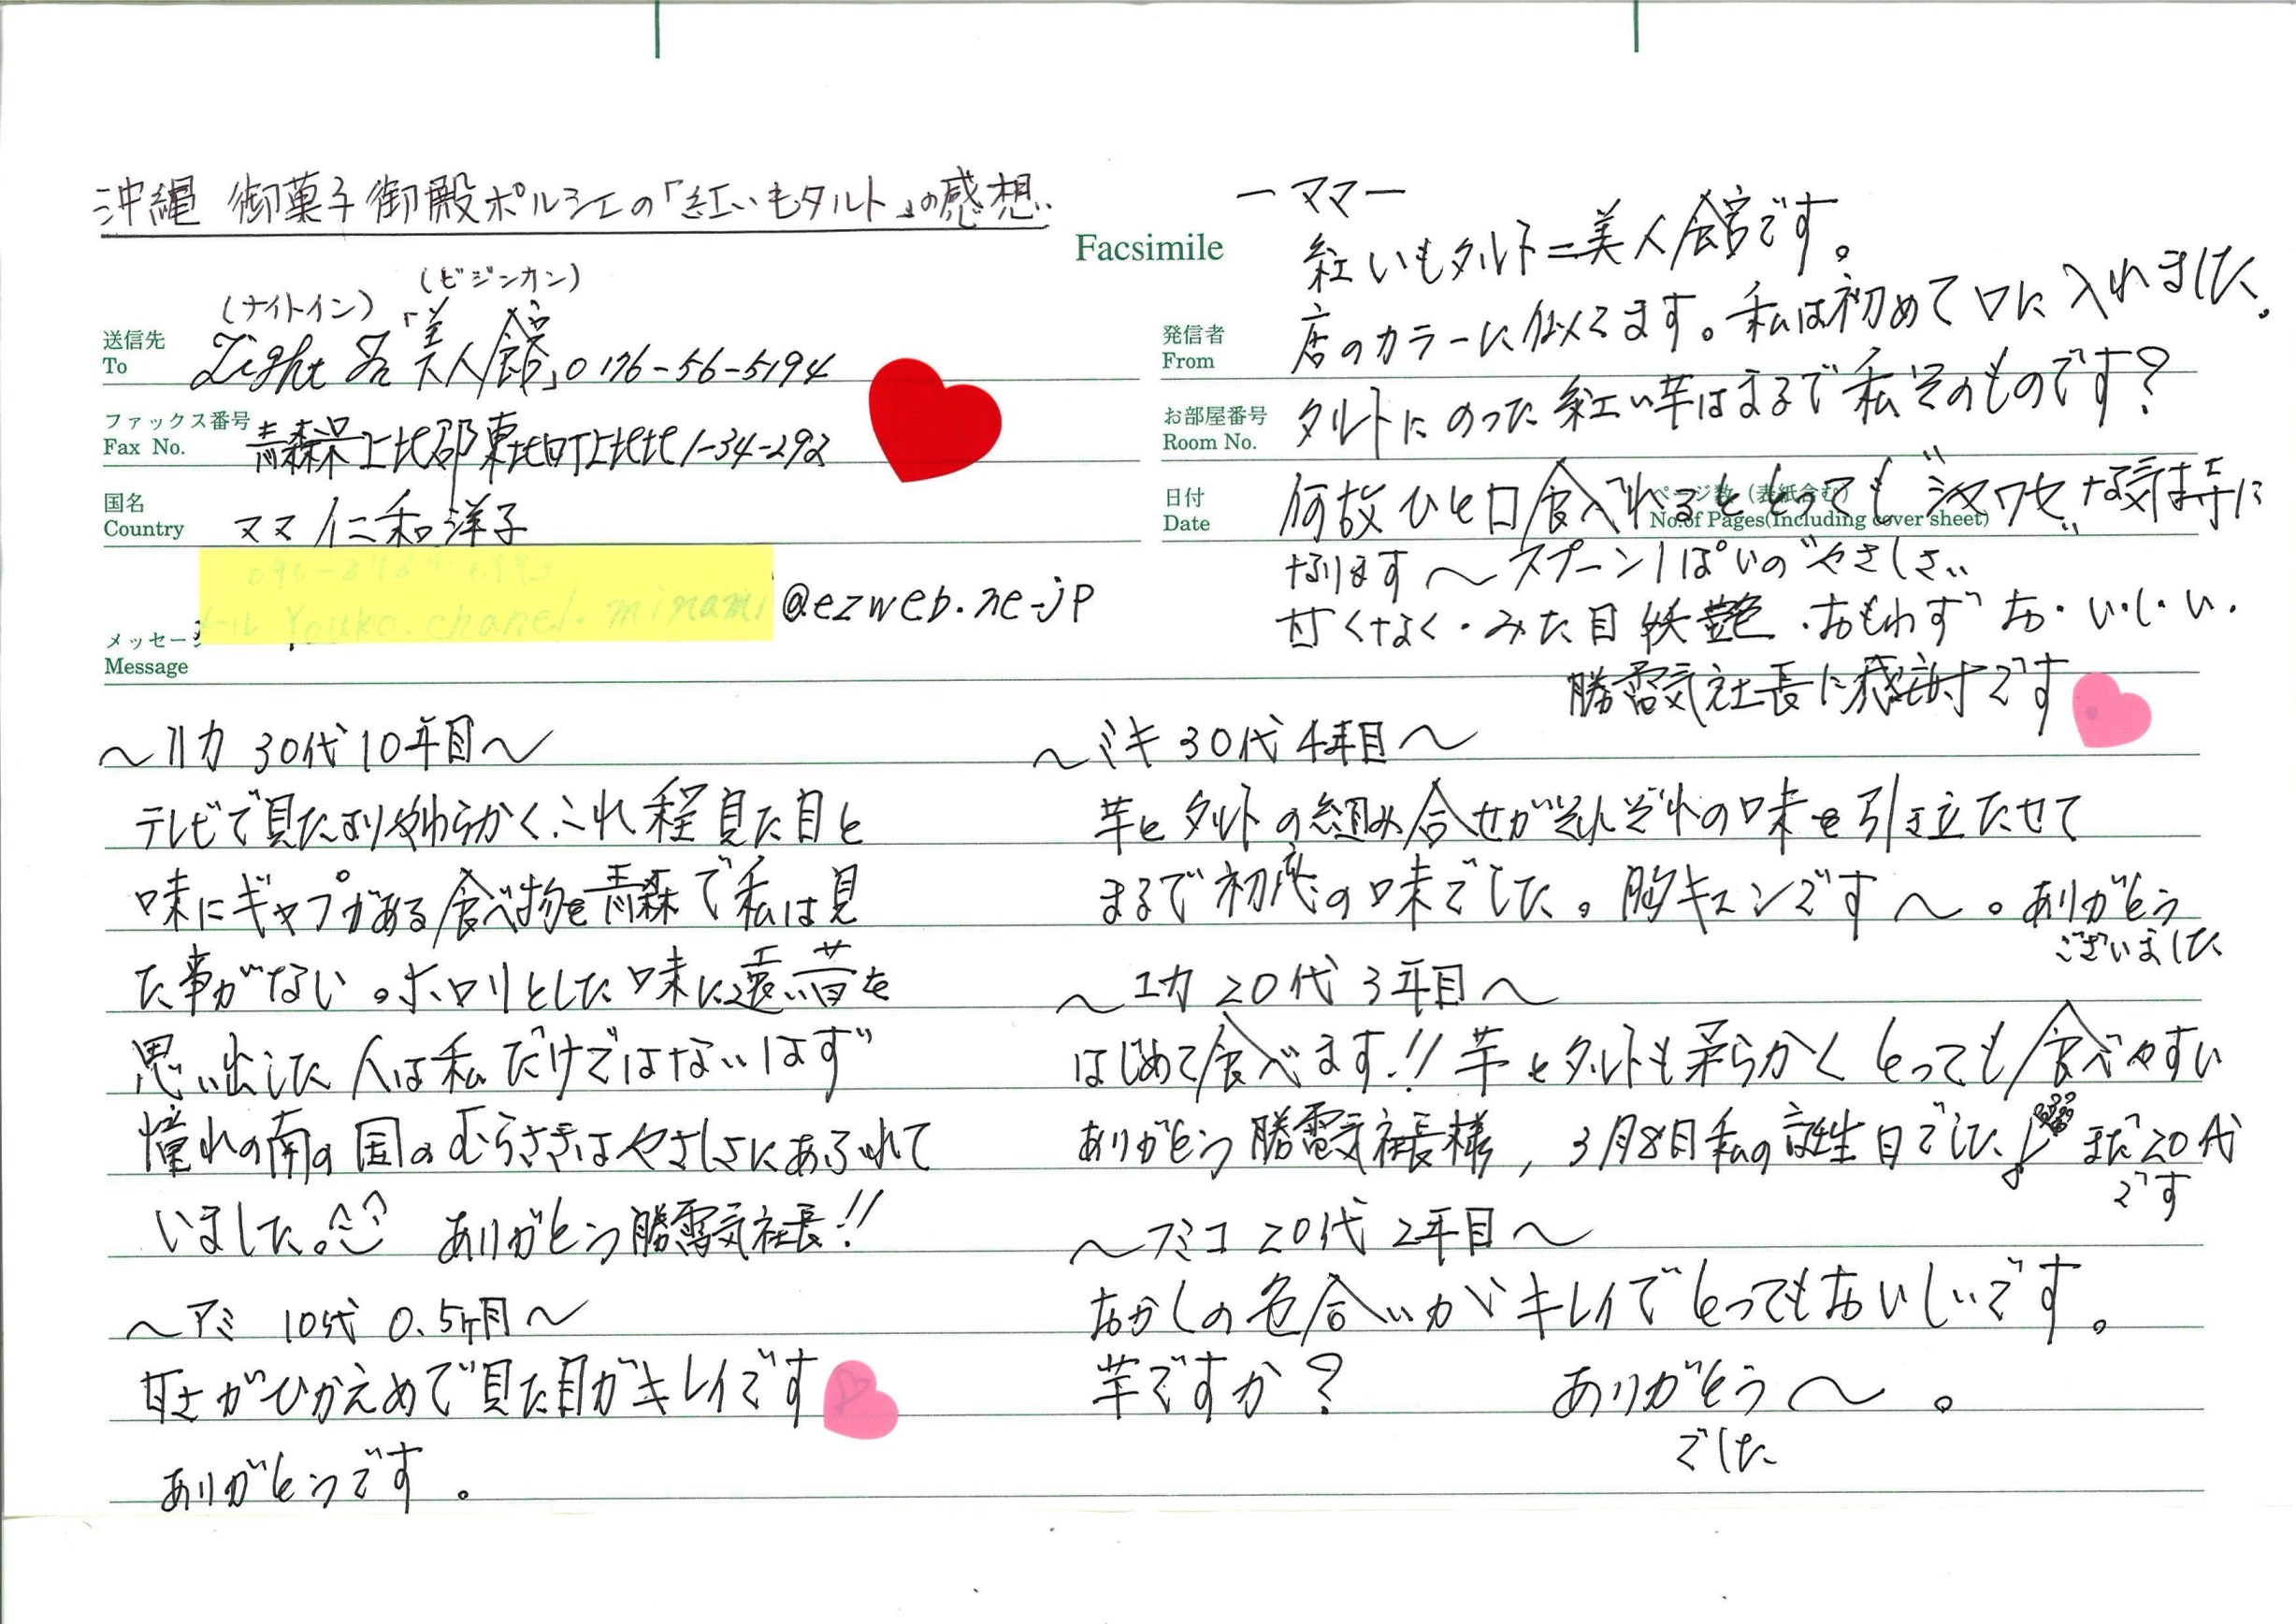 沖縄 御菓子御殿ポルシェの「紅いもタルト」の感想.
Facsimile
(ナイトイン) (ビジンカン)
送信先
To
Night In 「美人館」0176-56-5194
ファックス番号
Fax No.
青森県上北郡東北町上北北1-34-292
国名
Country
ママ 仁和洋子
メッセージ
Message
@ezweb.ne.jp
ーママー
紅いもタルト=美人館です。
発信者
From
店のカラーに似てます。私は初めて口に入れました。
お部屋番号
Room No.
タルトにのった紅い芋はまるで私そのものです?
日付
Date
ページ数(表紙含む)
No.of Pages(Including cover sheet)
何故ひと口食入れるととっても"シアワセ"な気持に
なります〜スプーン1ぱいの"やさしさ"
甘くなく・みた目妖艶・おもわず お・い・し・い.
勝電気社長に感謝です
〜リカ 30代 10年目〜
テレビで見たより柔わらかく、これ程見た目と
味にギャプがある食べ物を青森で私は見
た事がない。ホロリとした味に遠い昔を
思い出した人は私だけではないはず
憧れの南の国のむらさきはやさしさにあふれて
いました。^^ ありがとう勝電気社長!!
〜アミ 10代 0.5ヶ月〜
甘さがひかえめで見た目がキレイです
ありがとうです。
〜ミキ 30代 4年目〜
芋とタルトの組み合せがそれぞれの味を引き立たせて
まるで初恋の味でした。胸キュンです〜。ありがとう
ございました
〜ユカ 20代 3年目〜
はじめて食べます!! 芋もタルトも柔らかくとっても食べやすい
ありがとう勝電気社長様, 3月8日私の誕生日でした♪ まだ20代
です
〜フミコ 20代 2年目〜
おかしの色合いがキレイでとってもおいしいです。
芋ですか? ありがとう〜。
でした